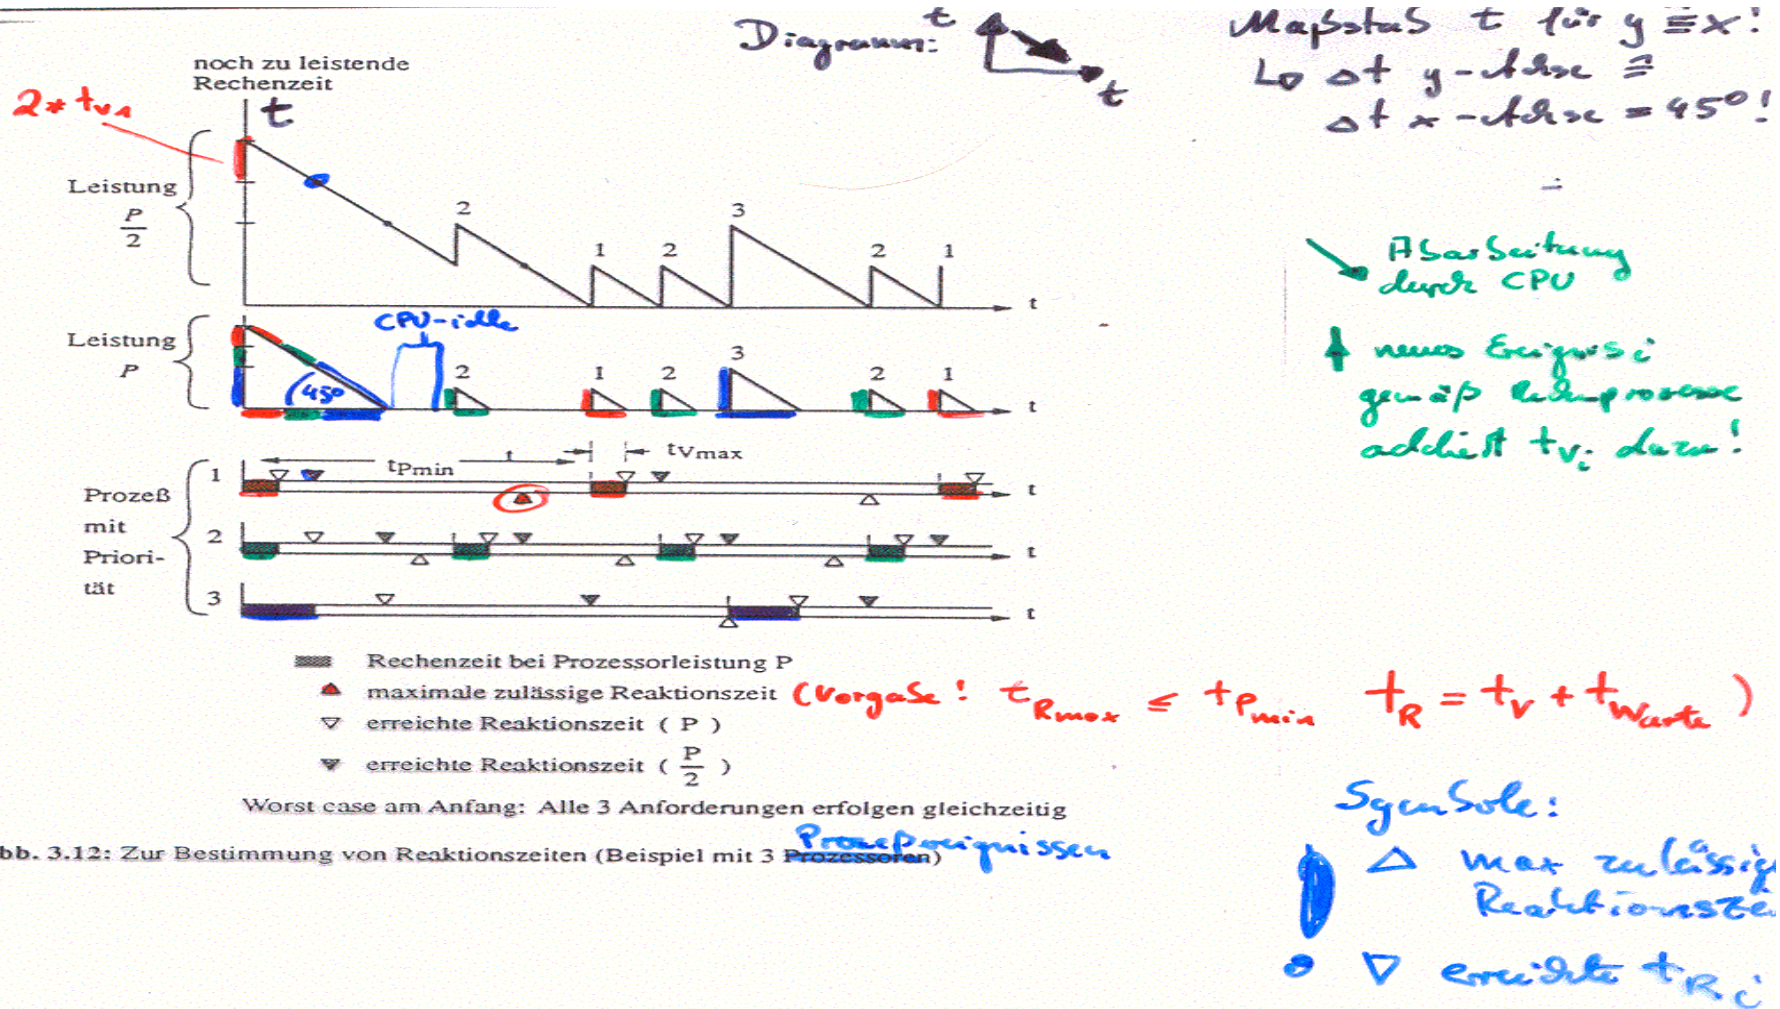 Diagramm:
t
t
Maßstab t für y ≡ x!
↳ Δt y-Achse ≙
Δt x-Achse = 45°!
noch zu leistende
Rechenzeit
t
2 * tv1
Leistung
P
2
2
1
2
3
2
1
t
Abarbeitung
durch CPU
neues Ereignis i
gemäß Rechenprozesse
addiert tvi dazu!
Leistung
P
CPU-idle
45°
2
1
2
3
2
1
t
tPmin
tVmax
Prozeß
mit
Priori-
tät
1
t
2
t
3
t
Rechenzeit bei Prozessorleistung P
maximale zulässige Reaktionszeit (Vorgabe! tRmax ≤ tPmin tR = tV + tWarte)
erreichte Reaktionszeit ( P )
erreichte Reaktionszeit ( P/2 )
Worst case am Anfang: Alle 3 Anforderungen erfolgen gleichzeitig
bb. 3.12: Zur Bestimmung von Reaktionszeiten (Beispiel mit 3 Prozessoren)
Prozeßereignissen
Symbole:
△ max zulässig
Reaktionsze
▽ erreichte tRi